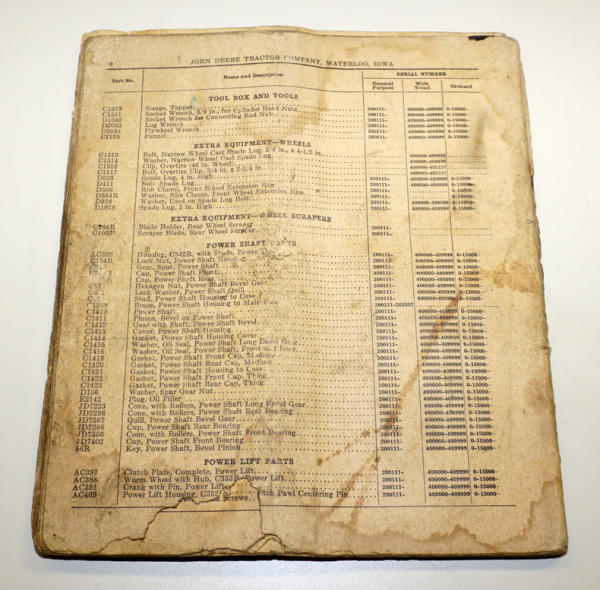 8 JOHN DEERE TRACTOR COMPANY, WATERLOO, IOWA
Part No. Name and Description SERIAL NUMBER
General Purpose Wide Tread Orchard
TOOL BOX AND TOOLS
C1079 Gauge, Tappet 200111- 400000-409999 0-15000
C1521 Socket Wrench, 5/8 in., for Cylinder Head Nuts 200111- 400000-409999 0-15000
D1083 Socket Wrench for Connecting Rod Nuts 200111- 400000-409999 0-15000
Lug Wrench 200111- 400000-409999 0-15000
D2094 Flywheel Wrench 200111- 400000-409999 0-15000
E2125 Funnel 200111- 400000-409999 0-15000
EXTRA EQUIPMENT—WHEELS
C1513 Bolt, Narrow Wheel Cast Spade Lug, 3/4 in. x 4-1/2 in.
C1514 Washer, Narrow Wheel Cast Spade Lug
Clip, Overtire (46 in. Wheel)
C1517 Bolt, Overtire Clip, 3/4 in. x 2-1/4 in.
D233 Spade Lug, 4 in. High 200111-
D411 Bolt, Spade Lug 200111-
Rim Clamp, Front Wheel Extension Rim
Washer, Rim Clamp, Front Wheel Extension Rim
D938 Washer, Used on Spade Lug Bolt
D1078 Spade Lug, 5 in. High
EXTRA EQUIPMENT—WHEEL SCRAPERS
Blade Holder, Rear Wheel Scraper 200111-
Scraper Blade, Rear Wheel Scraper 200111-
POWER SHAFT PARTS
AC386 Housing, C342R, with Studs, Power 200111- 400000-409999 0-15000
Lock Nut, Power Shaft Housing 200111- 400000-409999 0-15000
Gear, Spur, Power Shaft 200111- 400000-409999 0-15000
Cap, Power Shaft Front 200111- 400000-409999 0-15000
Cap, Power Shaft Rear 200111- 400000-409999 0-15000
Hexagon Nut, Power Shaft Bevel Gear 200111- 400000-409999 0-15000
Lock Washer, Power Shaft Quill 200111- 400000-409999 0-15000
Stud, Power Shaft Housing to Case 200111- 400000-409999 0-15000
Brace, Power Shaft Housing to Main Case
C1410 Power Shaft 200111- 400000-409999 0-15000
C1411 Pinion, Bevel on Power Shaft 200111- 400000-409999 0-15000
C1412 Gear with Shaft, Power Shaft Bevel 200111- 400000-409999 0-15000
C1413 Cover, Power Shaft Housing 200111- 400000-409999 0-15000
C1414 Gasket, Power Shaft Housing Cover 200111- 400000-409999 0-15000
C1415 Washer, Oil Seal, Power Shaft Long Bevel Gear 200111- 400000-409999 0-15000
C1416 Washer, Oil Seal, Power Shaft 200111- 400000-409999 0-15000
C1419 Gasket, Power Shaft Front Cap, Medium 200111- 400000-409999 0-15000
C1420 Gasket, Power Shaft Rear Cap, Medium 200111- 400000-409999 0-15000
C1421 Gasket, Power Shaft Housing to Case 200111- 400000-409999 0-15000
C1422 Gasket, Power Shaft Front Cap, Thick 200111- 400000-409999 0-15000
C1423 Gasket, Power Shaft Rear Cap, Thick 200111- 400000-409999 0-15000
D156 Washer, Spur Gear Nut 200111- 400000-409999 0-15000
E2142 Plug, Oil Filler 200111- 400000-409999 0-15000
JD7223 Cone, with Rollers, Power Shaft Long Bevel Gear 200111- 400000-409999 0-15000
JD7256 Cone, with Rollers, Power Shaft Rear Bearing 200111- 400000-409999 0-15000
JD7267 Quill, Power Shaft Bevel Gear 200111- 400000-409999 0-15000
JD7286 Cup, Power Shaft Rear Bearing 200111- 400000-409999 0-15000
JD7356 Cone, with Rollers, Power Shaft Front Bearing 200111- 400000-409999 0-15000
JD7402 Cup, Power Shaft Front Bearing 200111- 400000-409999 0-15000
56R Key, Power Shaft, Bevel Pinion 200111- 400000-409999 0-15000
POWER LIFT PARTS
AC387 Clutch Plate, Complete, Power Lift 200111- 400000-409999 0-15000
AC388 Worm Wheel with Hub, C353R, Power Lift 200111- 400000-409999 0-15000
AC391 Crank with Pin, Power Lift 200111- 400000-409999 0-15000
AC409 Power Lift Housing, Pawl Centering Pin 200111- 400000-409999 0-15000
Screws